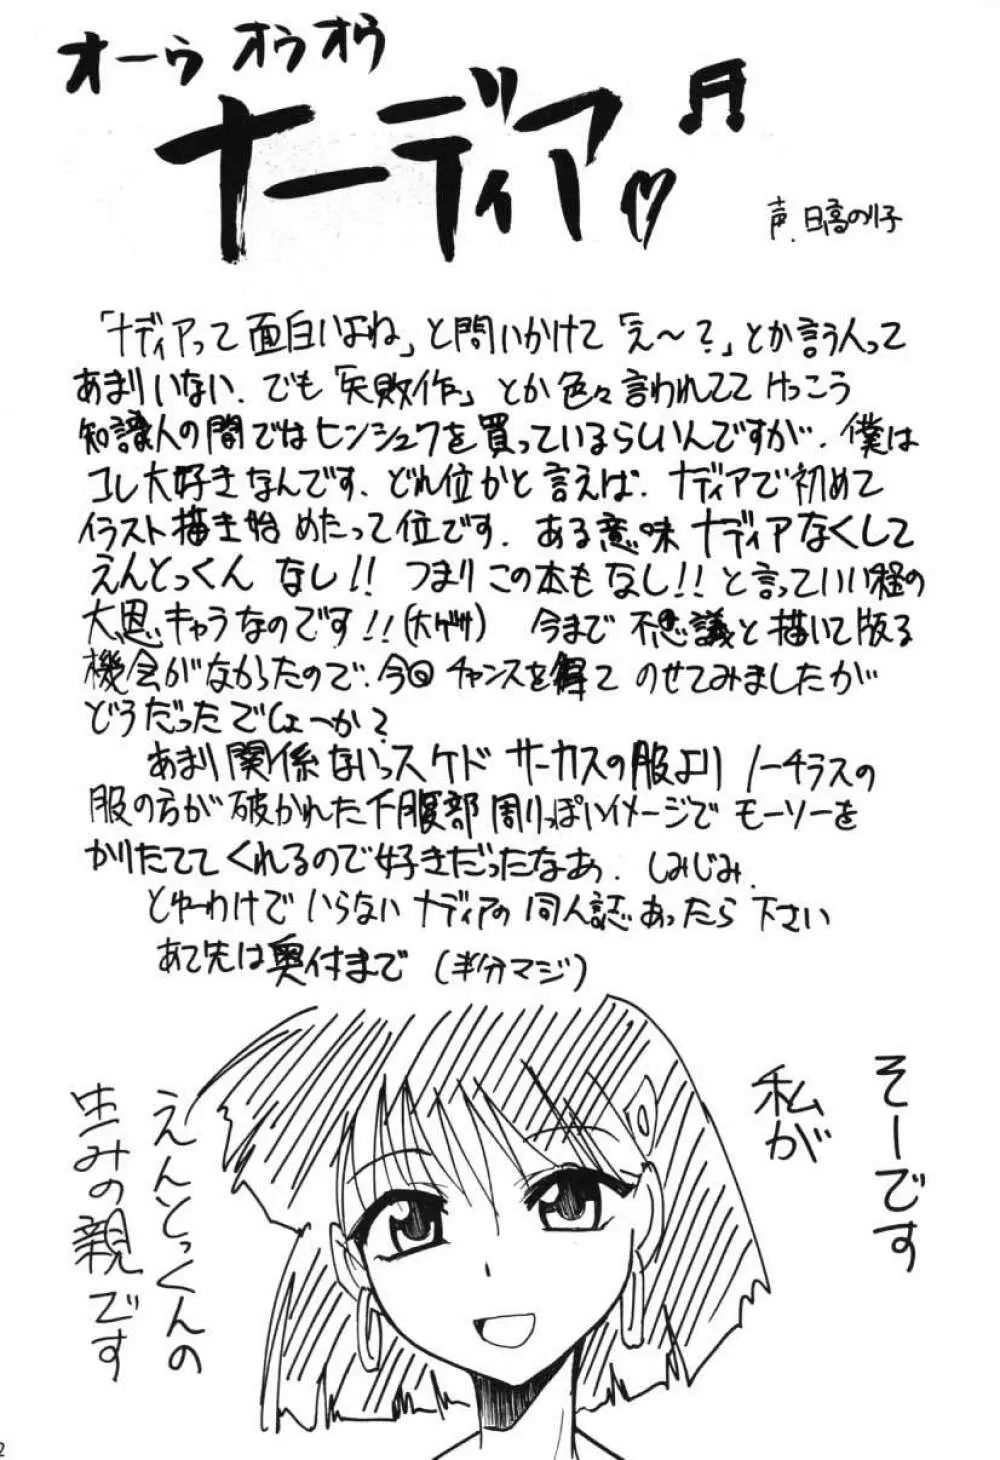 オーゥ オゥオゥ
ナーディア♡♬
声.日高のり子
「ナディアって面白いよね」と問いかけて「え〜?」とか言う人って
あまりいない. でも「失敗作」とか色々言われててけっこう
知識人の間ではヒンシュクを買っているらしいんですが、僕は
コレ大好きなんです、どれ位かと言えば、ナディアで初めて
イラスト描き始めたって位です. ある意味ナディアなくして
えんとっくんなし!! つまりこの本もなし!! と言っていい程の
大恩キャラなのです!!(大ゲサ) 今まで不思議と描いて版る
機会がなかったので、今回チャンスを得てのせてみましたが
どうだったでしょーか?
あまり関係ないっスケド サーカスの服よりノーチラスの
服の方が破かれた下腹部周りっぽいイメージでモーソーを
かりたててくれるので好きだったなぁ. しみじみ.
とゆーわけでいらないナディアの同人誌あったら下さい
あて先は奥付まで(半分マジ)
そーです
私が
えんとっくんの
生みの親です
2